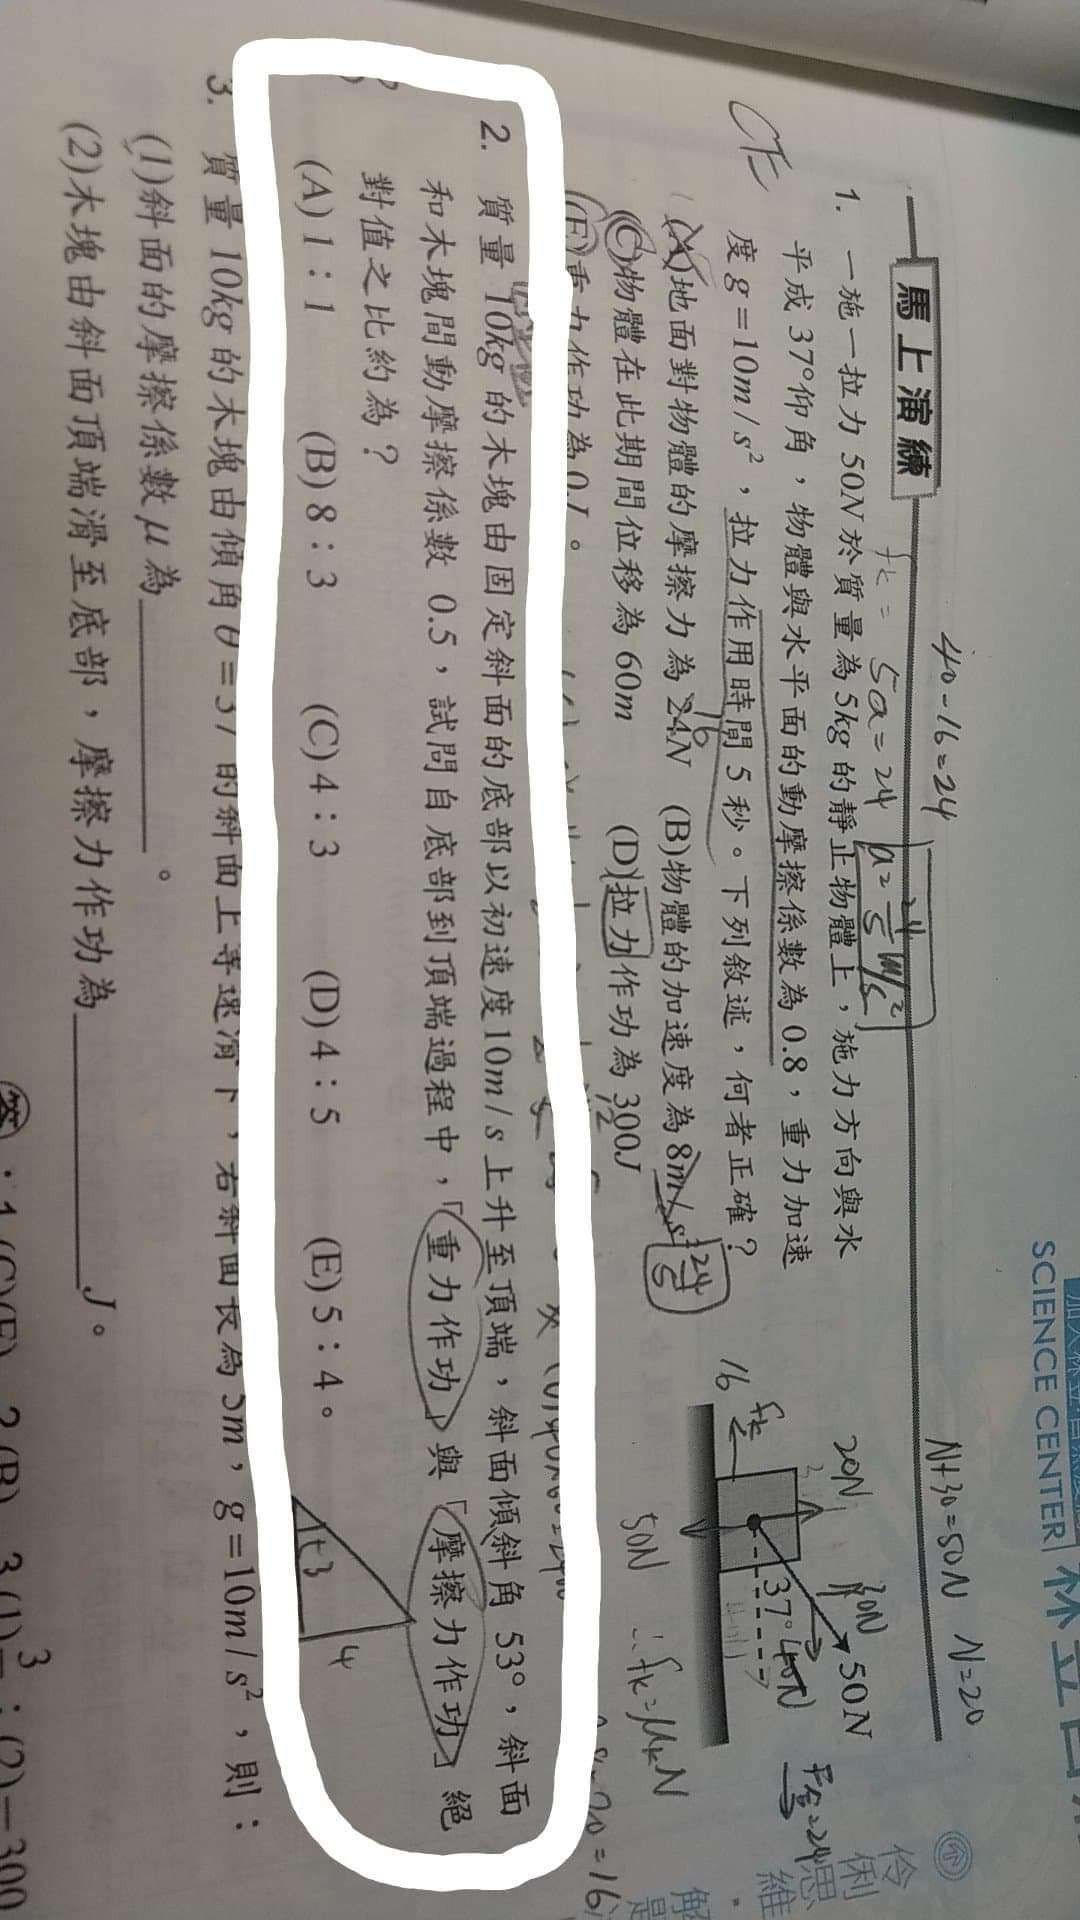 SCIENCE CENTER
40-16=24
N+30=50N N=20
馬上演練
fk=
5a=24
a=24/5 m/s²
1. 一施一拉力 50N 於質量為 5kg 的靜止物體上，施力方向與水
平成 37°仰角，物體與水平面的動摩擦係數為 0.8，重力加速
度 g＝10m/s²，拉力作用時間 5 秒。下列敘述，何者正確？
CE
(A)地面對物體的摩擦力為 24N (B)物體的加速度為 8m/s²
16
24/5
(C)物體在此期間位移為 60m (D)拉力作功為 300J
12
(E)重力作功為 0J。
20N
30N
50N
37°
40N
fk
16
50N
∴fk=μkN
=16
2. 質量 10kg 的木塊由固定斜面的底部以初速度 10m/s 上升至頂端，斜面傾斜角 53°，斜面
和木塊間動摩擦係數 0.5，試問自底部到頂端過程中，「重力作功」與「摩擦力作功」絕
對值之比約為？
(A) 1：1 (B) 8：3 (C) 4：3 (D) 4：5 (E) 5：4。
4
3. 質量 10kg 的木塊由傾角 θ＝37°的斜面上等速滑下，右斜面長為 5m，g＝10m/s²，則：
(1)斜面的摩擦係數 μ 為＿＿＿＿＿。
(2)木塊由斜面頂端滑至底部，摩擦力作功為＿＿＿＿＿J。